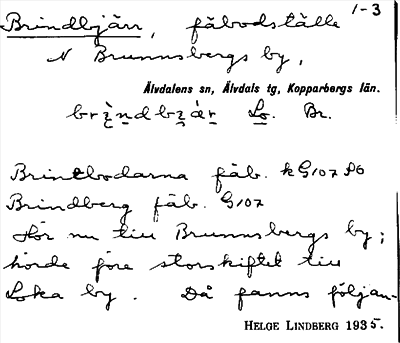 1-3
Brindbjärr, fäbodställe
N Brunnsbergs by,
Älvdalens sn, Älvdals tg, Kopparbergs län.
Lo. Br.
Brintbodarna fäb. k G107 S6
Brindberg fäb. G107
Hör nu till Brunnsbergs by;
hörde före storskiftet till
Loka by. Då fanns följan-
HELGE LINDBERG 1935.